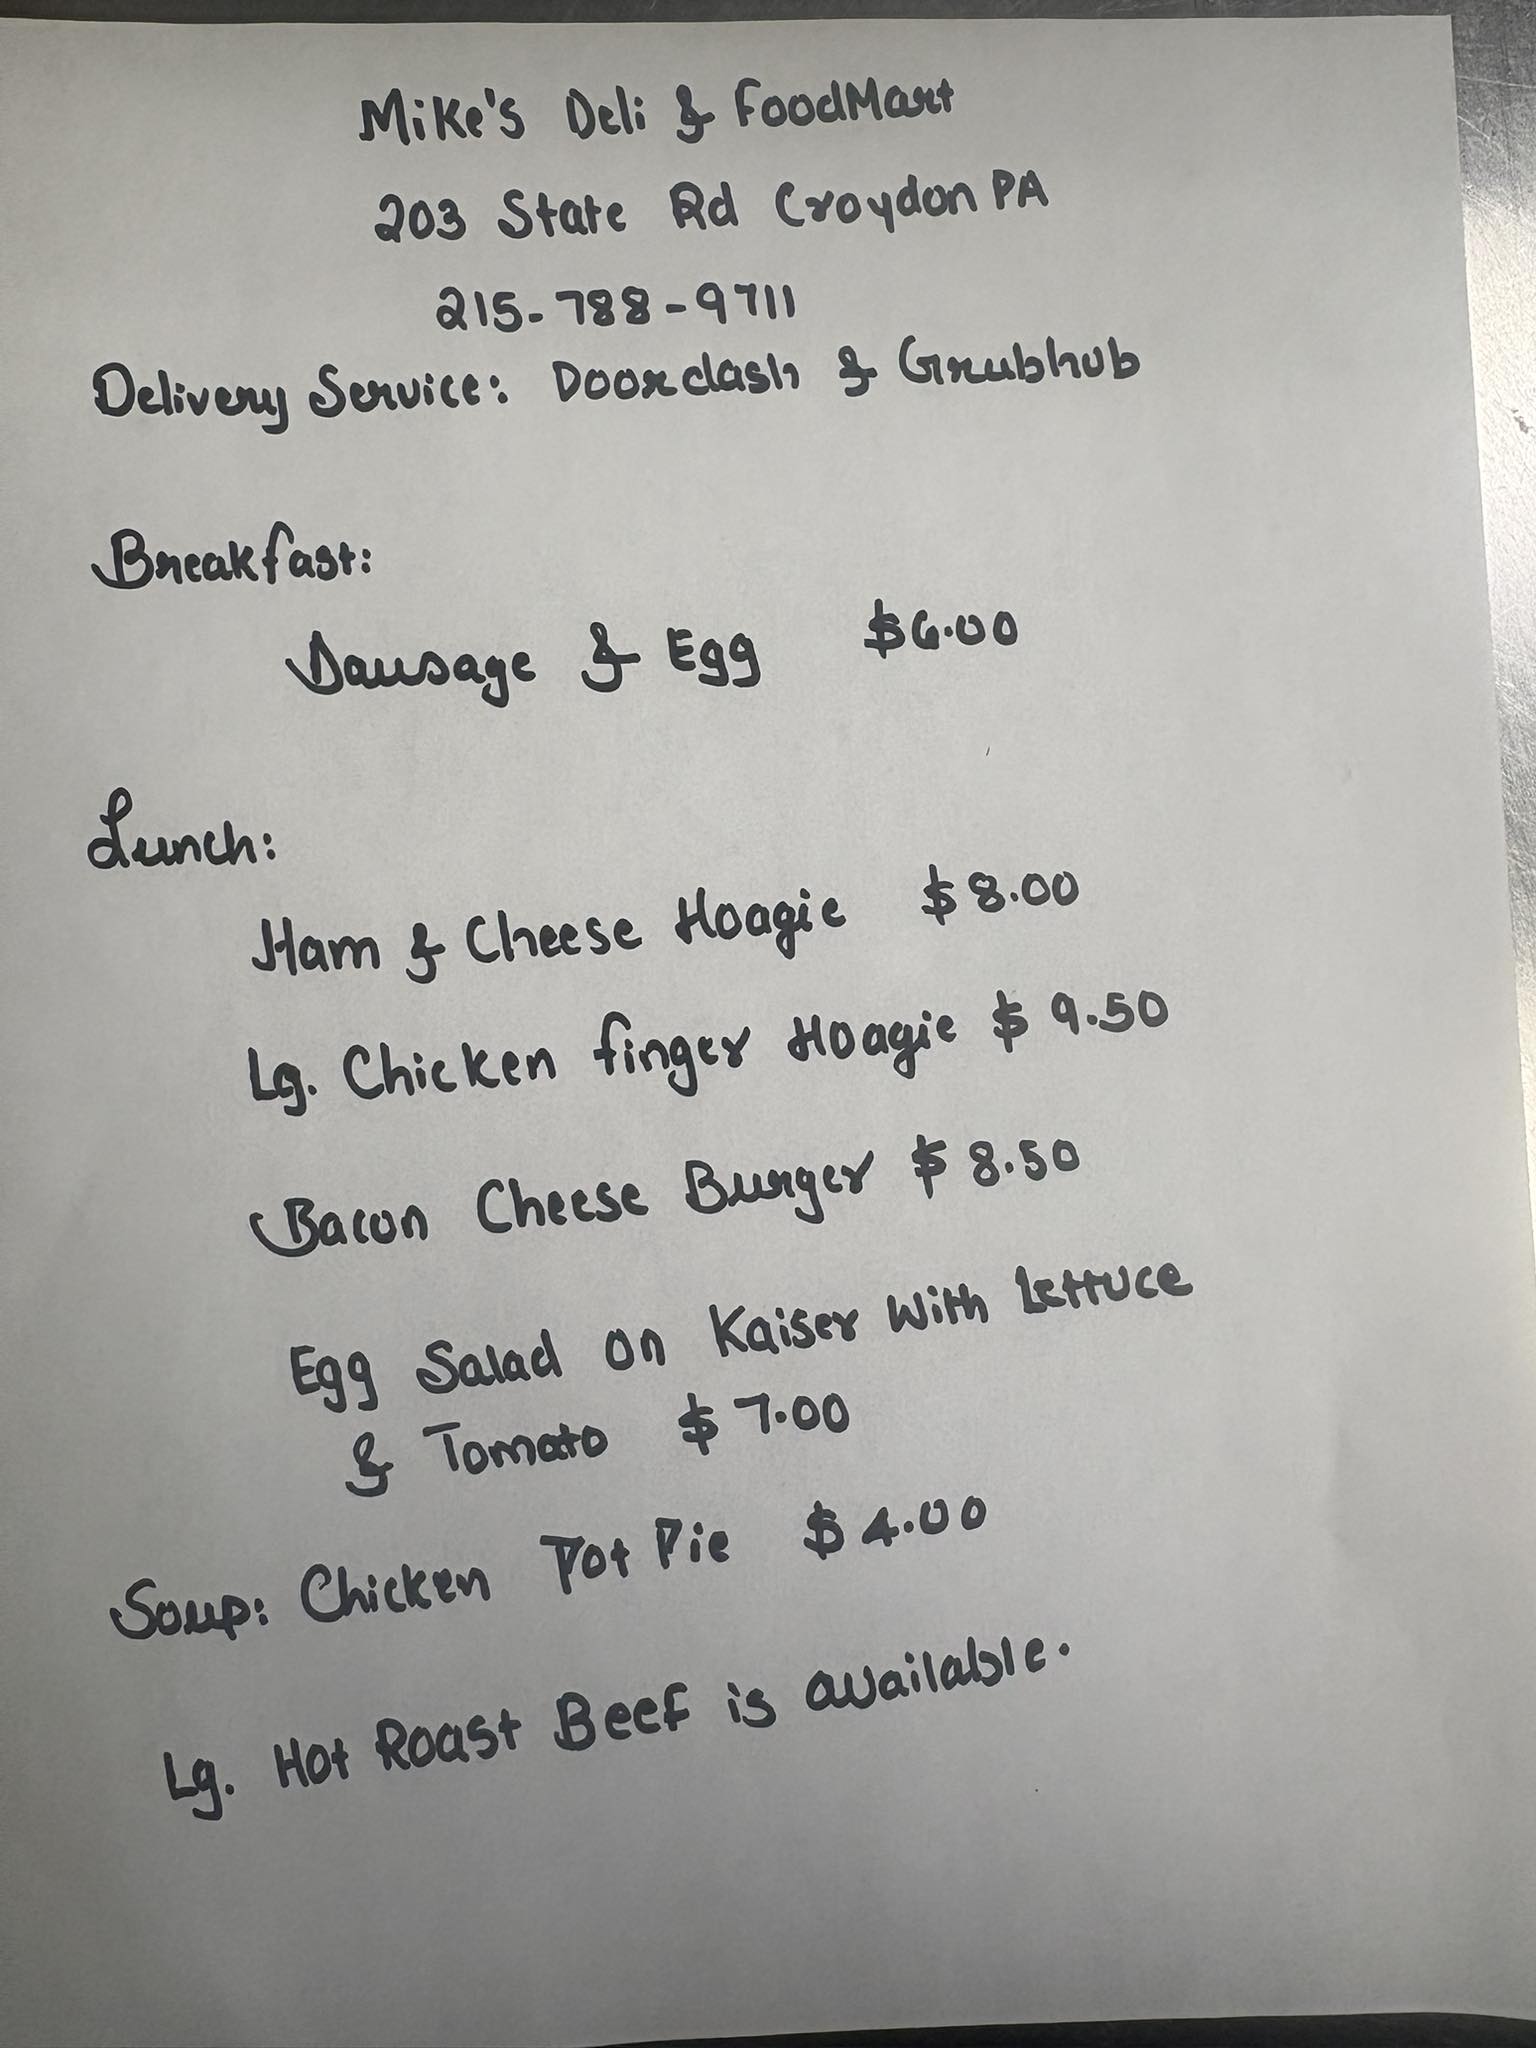 Mike's Deli & FoodMart
203 State Rd Croydon PA
215-788-9711
Delivery Service: Doordash & Grubhub
Breakfast:
Sausage & Egg $6.00
Lunch:
Ham & Cheese Hoagie $8.00
Lg. Chicken finger Hoagie $9.50
Bacon Cheese Burger $8.50
Egg Salad on Kaiser With Lettuce
& Tomato $7.00
Soup: Chicken Pot Pie $4.00
Lg. Hot Roast Beef is available.